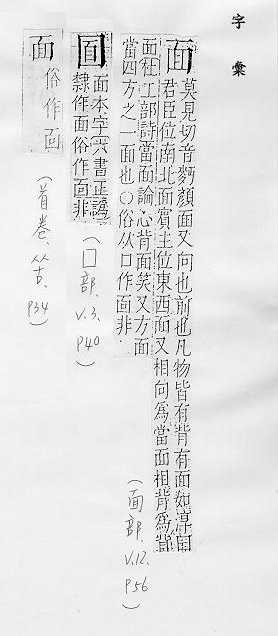 字彙
面 莫見切音麪顏面又向也前也凡物皆有背有面如淳曰
君臣位南北面賓主位東西面又相向爲當面相背爲背
面杜工部詩當面論心背面笑又方面
當四方之一面也○俗从口作面非
(面部、V.12. P56)
圎 面本字六書正譌
隸作面俗作靣非
(囗部、V.3. P40)
面 俗作靣
(首卷、从古、P34)